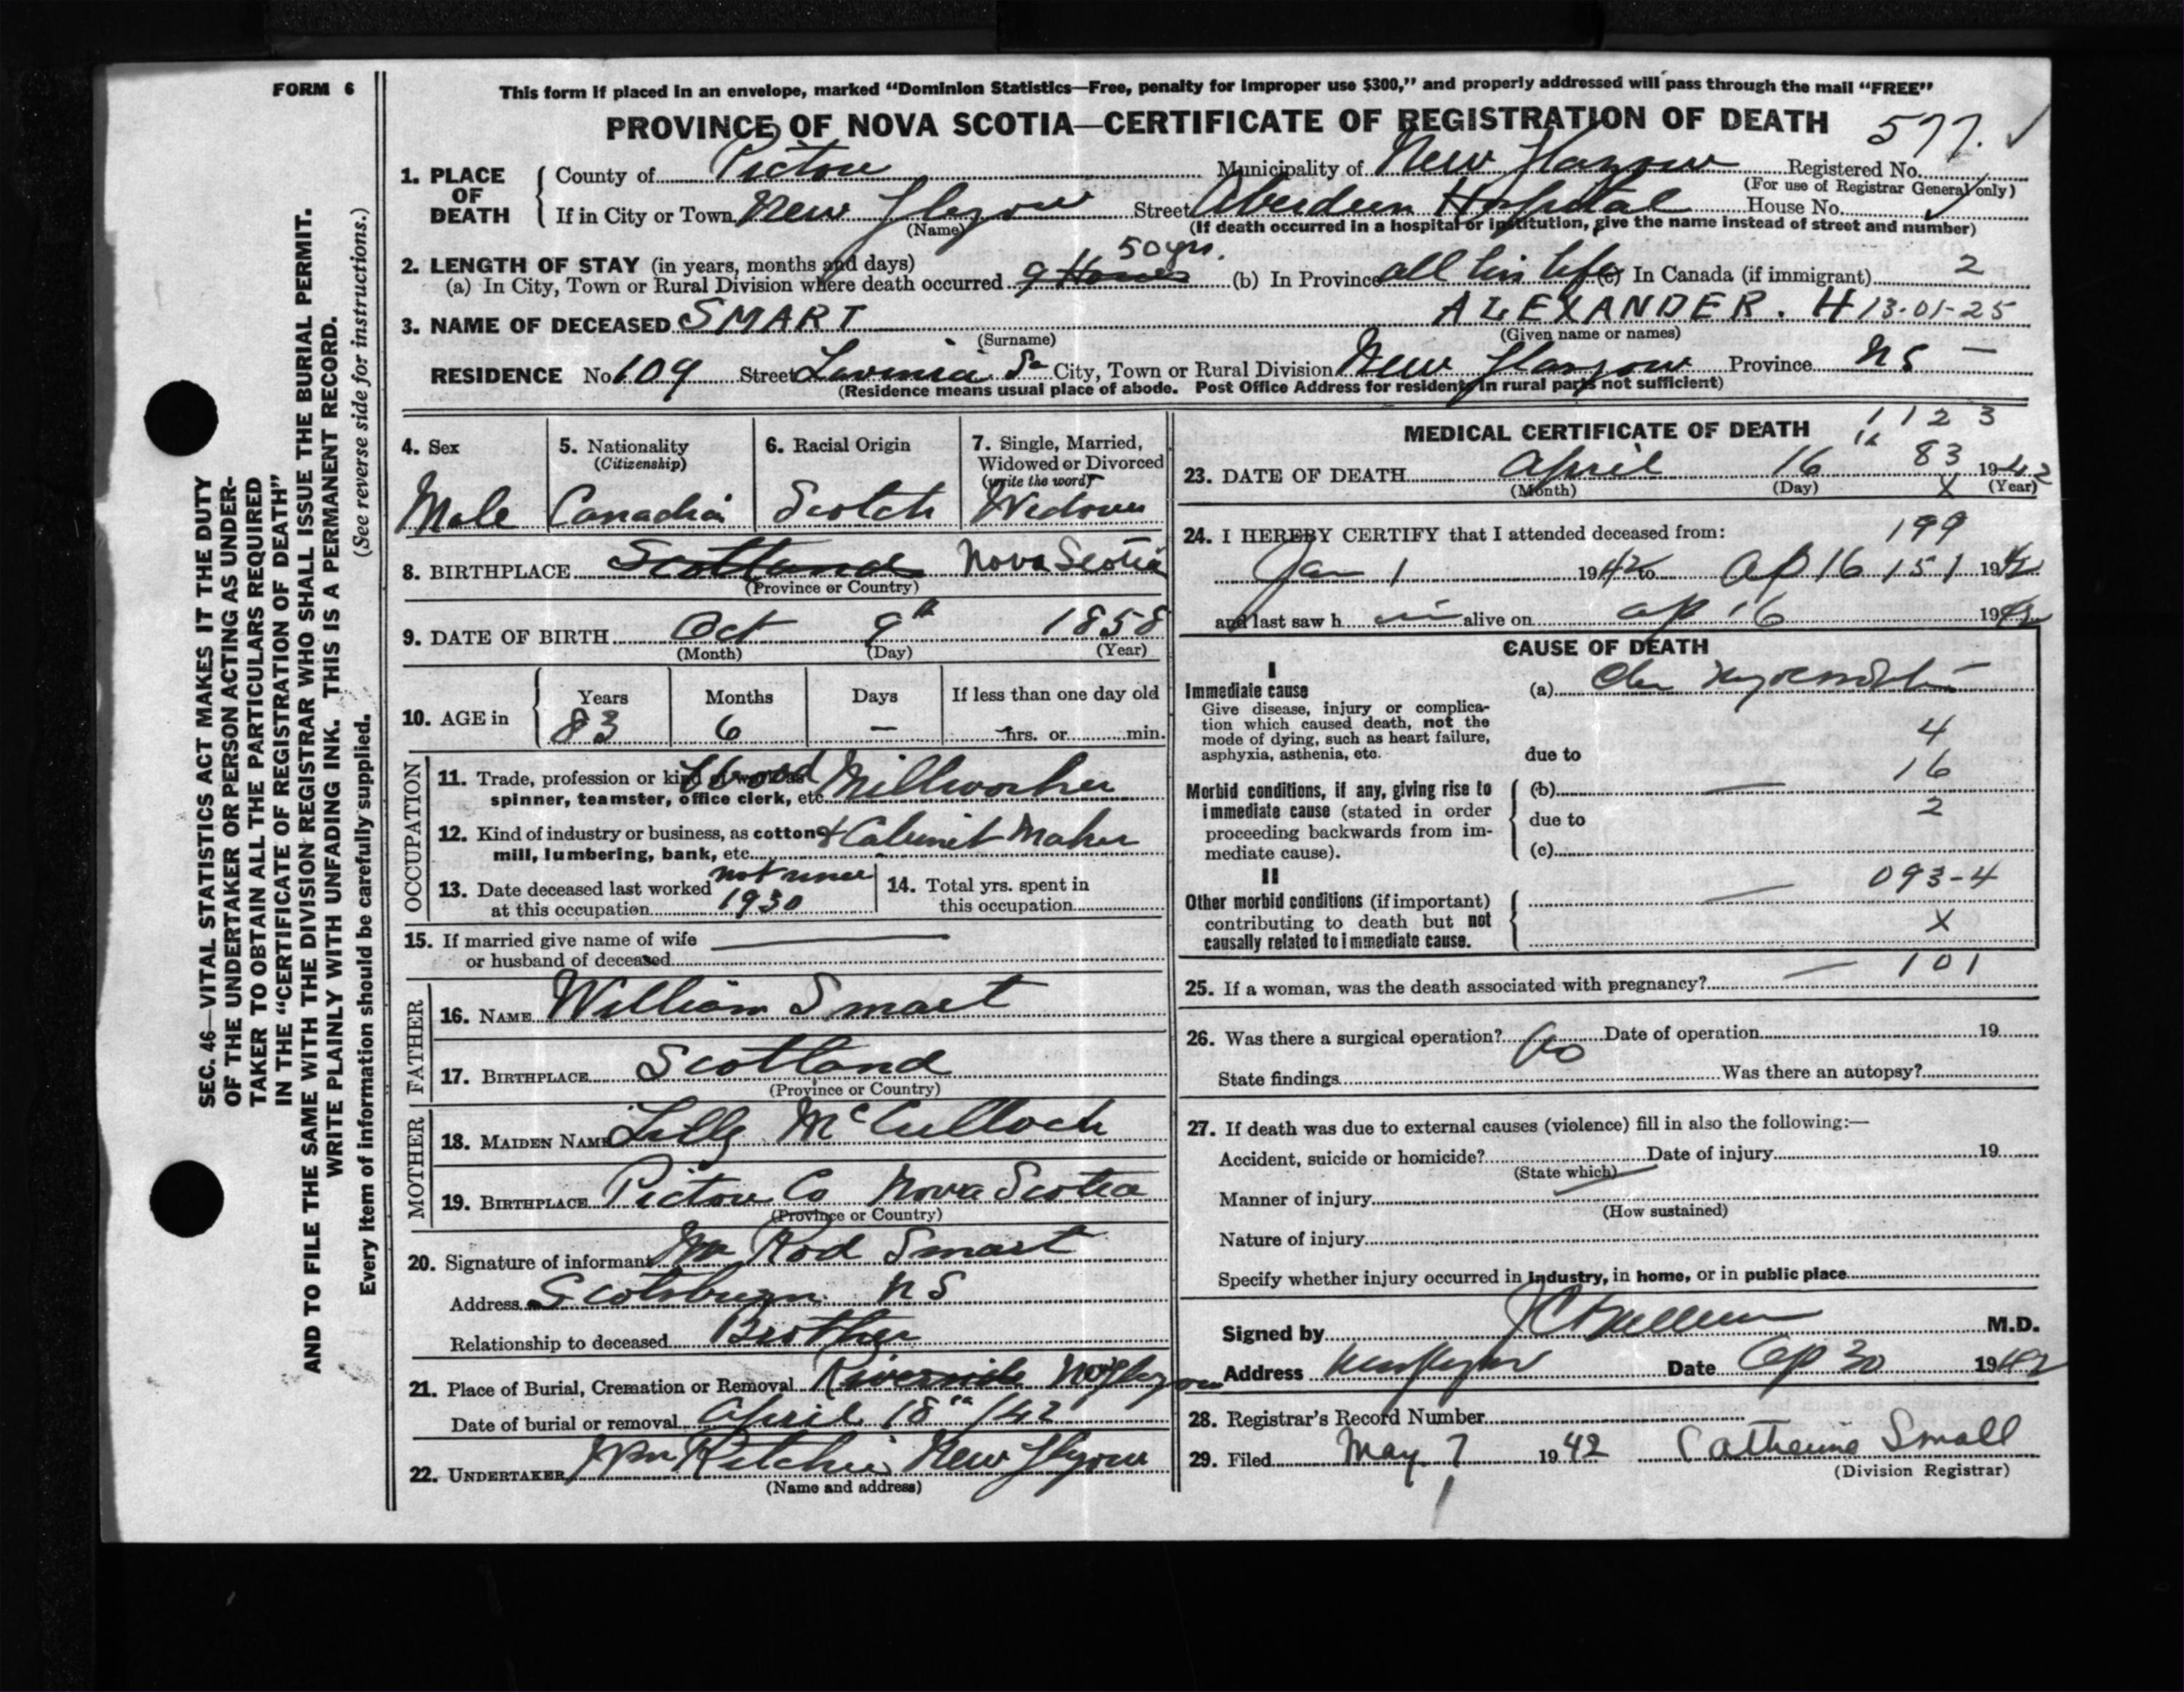 FORM 6
This form if placed in an envelope, marked "Dominion Statistics—Free, penalty for improper use $300," and properly addressed will pass through the mail "FREE"
PROVINCE OF NOVA SCOTIA—CERTIFICATE OF REGISTRATION OF DEATH
577. ✓
1. PLACE OF DEATH
County of Pictou Municipality of New Glasgow Registered No.
(For use of Registrar General only)
If in City or Town New Glasgow Street Aberdeen Hospital House No.
(Name) (If death occurred in a hospital or institution, give the name instead of street and number)
2. LENGTH OF STAY (in years, months and days) 50 yrs.
(a) In City, Town or Rural Division where death occurred 9 Hours (b) In Province all his life (c) In Canada (if immigrant) 2
3. NAME OF DECEASED SMART ALEXANDER. H 13-01-25
(Surname) (Given name or names)
RESIDENCE No. 109 Street Lavinia St City, Town or Rural Division New Glasgow Province NS —
(Residence means usual place of abode. Post Office Address for residents in rural parts not sufficient)
4. Sex
Male
5. Nationality
(Citizenship)
Canadian
6. Racial Origin
Scotch
7. Single, Married, Widowed or Divorced
(write the word)
Widower
8. BIRTHPLACE Scotland Nova Scotia
(Province or Country)
9. DATE OF BIRTH Oct 9th 1858
(Month) (Day) (Year)
10. AGE in
Years Months Days If less than one day old
83 6 — hrs. or min.
OCCUPATION
11. Trade, profession or kind of work as Wood Millworker
spinner, teamster, office clerk, etc.
12. Kind of industry or business, as cotton & Cabinet Maker
mill, lumbering, bank, etc.
13. Date deceased last worked not since
at this occupation 1930
14. Total yrs. spent in
this occupation
15. If married give name of wife
or husband of deceased
FATHER
16. NAME William Smart
17. BIRTHPLACE Scotland
(Province or Country)
MOTHER
18. MAIDEN NAME Lilly McCulloch
19. BIRTHPLACE Pictou Co Nova Scotia
(Province or Country)
20. Signature of informant Mr Rod Smart
Address Scotsburn NS
Relationship to deceased Brother
21. Place of Burial, Cremation or Removal Riverside N. Glasgow
Date of burial or removal April 18th/42
22. UNDERTAKER Wm Ritchie New Glasgow
(Name and address)
MEDICAL CERTIFICATE OF DEATH
1123
23. DATE OF DEATH April 16th 83 1942
(Month) (Day) X (Year)
24. I HEREBY CERTIFY that I attended deceased from:
199
Jan 1 1942 to Ap 16 151 1942
and last saw h im alive on ap 16 1942
CAUSE OF DEATH
I
Immediate cause
Give disease, injury or complication which caused death, not the mode of dying, such as heart failure, asphyxia, asthenia, etc.
(a) Chr
4
due to
16
Morbid conditions, if any, giving rise to immediate cause (stated in order proceeding backwards from immediate cause).
(b) —
due to 2
(c)
II
093-4
Other morbid conditions (if important) contributing to death but not causally related to immediate cause.
—
X
101
25. If a woman, was the death associated with pregnancy? —
26. Was there a surgical operation? No Date of operation 19
State findings Was there an autopsy?
27. If death was due to external causes (violence) fill in also the following:—
Accident, suicide or homicide? Date of injury 19
(State which)
Manner of injury
(How sustained)
Nature of injury
Specify whether injury occurred in industry, in home, or in public place
Signed by M.D.
Address New Glasgow Date Ap 30 1942
28. Registrar's Record Number
29. Filed May 7 1942 Catherine Small
(Division Registrar)
SEC. 46—VITAL STATISTICS ACT MAKES IT THE DUTY
OF THE UNDERTAKER OR PERSON ACTING AS UNDER-
TAKER TO OBTAIN ALL THE PARTICULARS REQUIRED
IN THE "CERTIFICATE OF REGISTRATION OF DEATH"
AND TO FILE THE SAME WITH THE DIVISION REGISTRAR WHO SHALL ISSUE THE BURIAL PERMIT.
WRITE PLAINLY WITH UNFADING INK. THIS IS A PERMANENT RECORD.
(See reverse side for instructions.)
Every item of information should be carefully supplied.